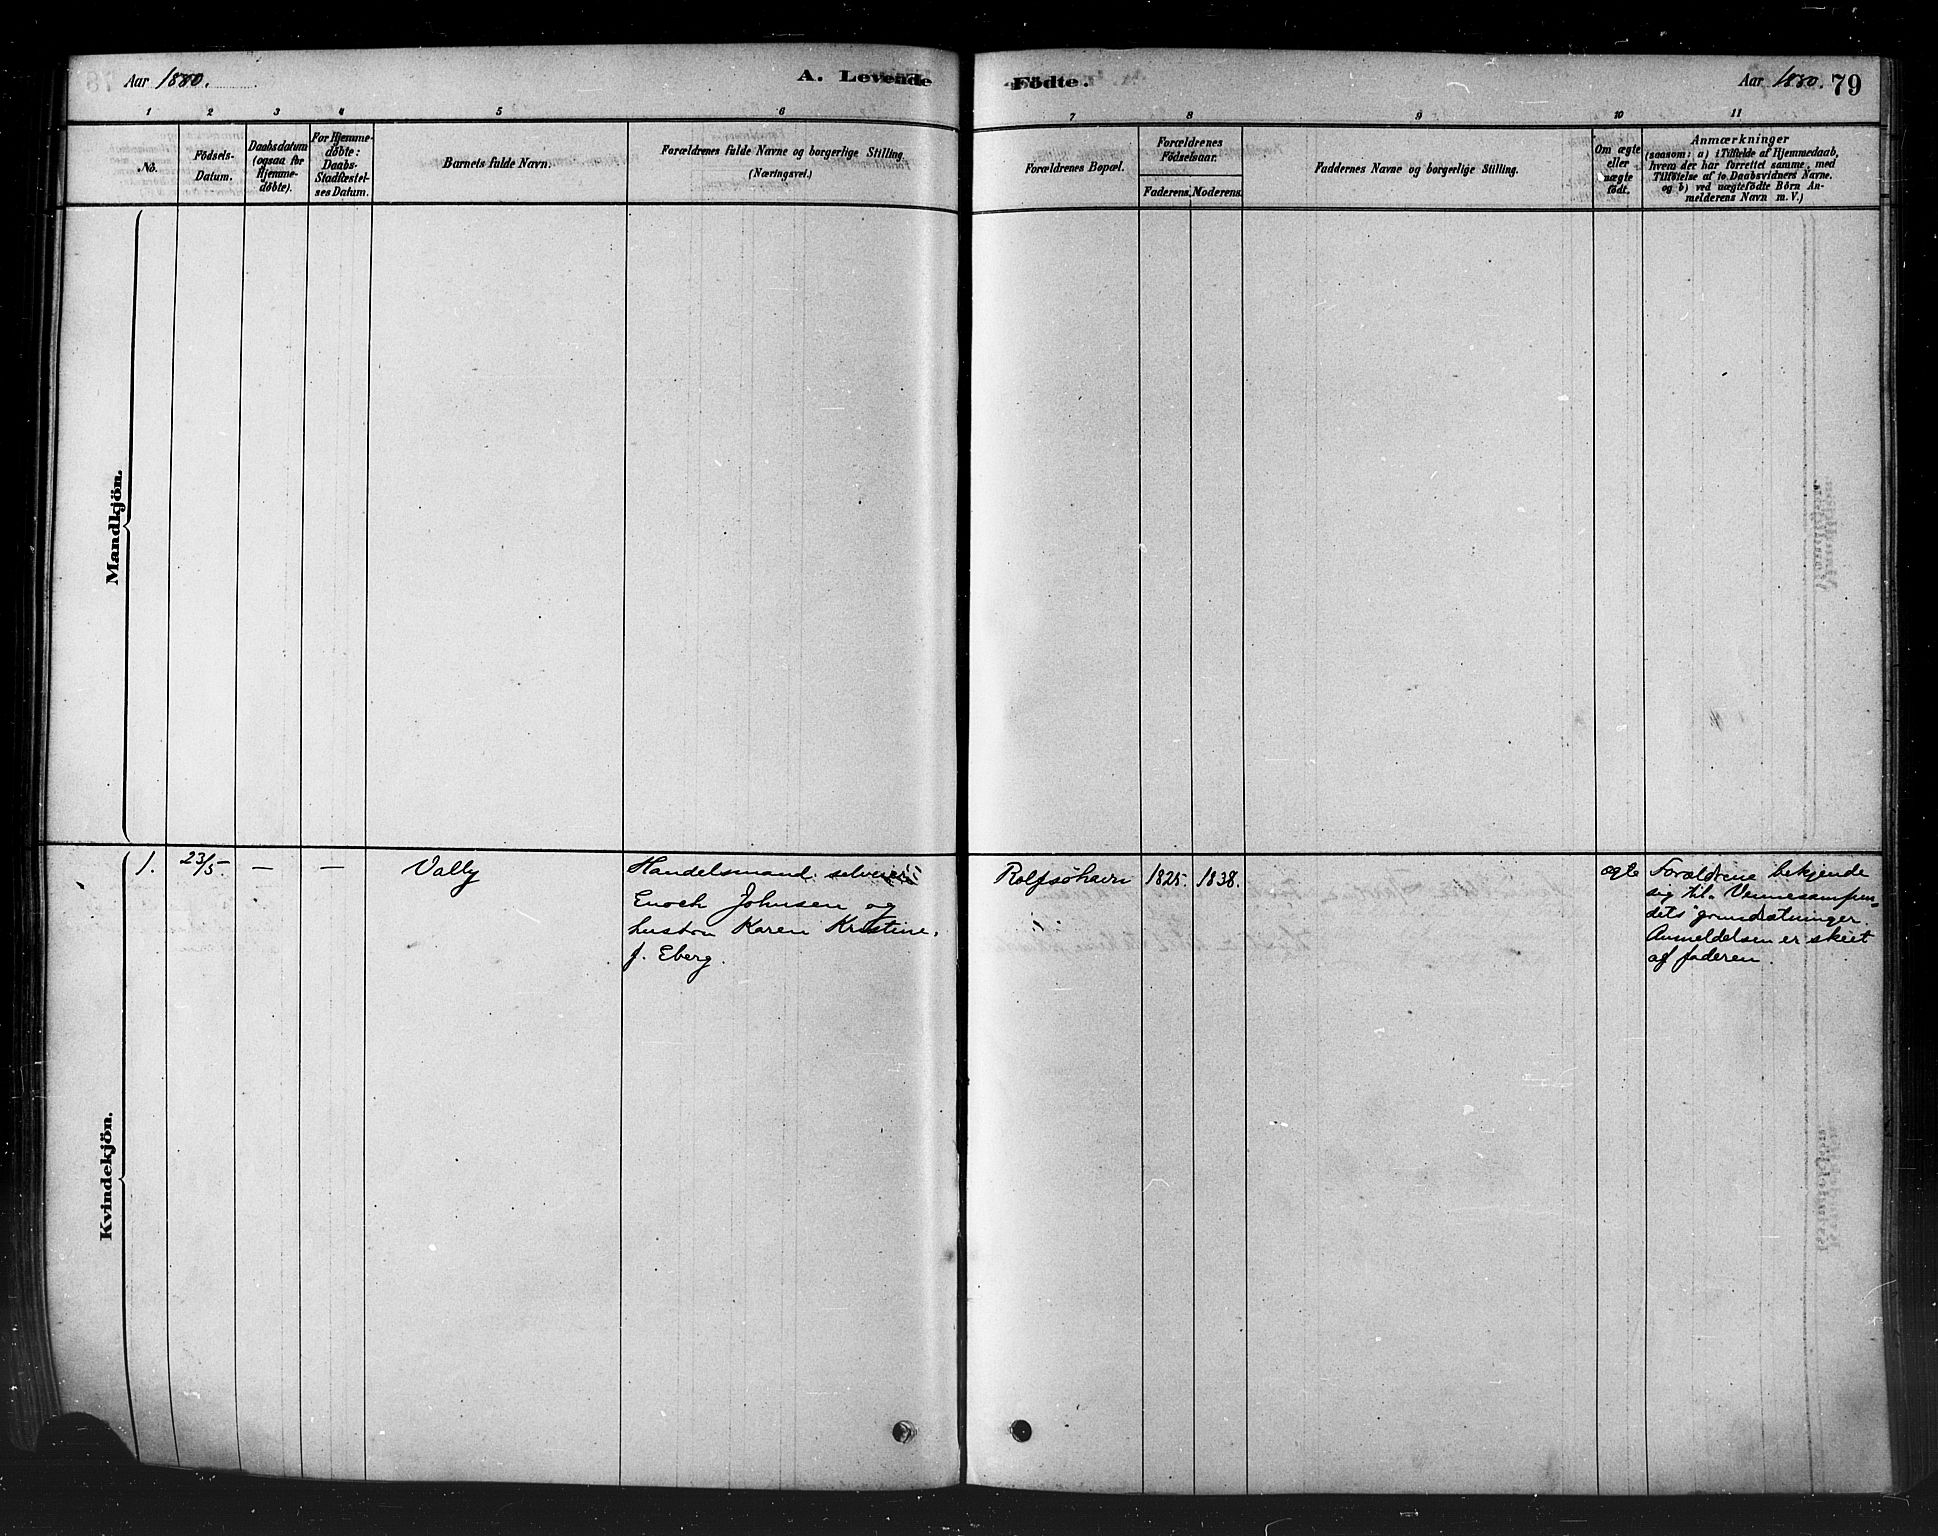 Aar 1880.
A. Levende
Födte.
Aar 1880. 79
1 2 3 4 5 6 7 8 9 10 11
No.
Födsels-
Datum.
Daabsdatum
(ogsaa for
Hjemme-
døbte).
For Hjemme-
døbte:
Daabs-
Stadfæstel-
ses Datum.
Barnets fulde Navn.
Forældrenes fulde Navne og borgerlige Stilling.
(Næringsvei.)
Forældrenes Bopæl.
Forældrenes
Födselsaar.
Faderens. Moderens.
Faddernes Navne og borgerlige Stilling.
Om ægte
eller
uægte
födt.
Anmærkninger
(saasom: a) i Tilfælde af Hjemmedaab,
hvem der har forrettet samme, med
Tilföielse af to Daabsvidners Navne.
og b) ved uægtefödte Börn An-
melderens Navn m. V.)
Mandkjön.
Kvindekjön.
1.
23/5
—
—
Vally
Handelsmand selveier
Enoch Johnsen og
hustru Karen Kristine,
f. Eberg.
Rolfsøhavn
1825.
1838.
ægte
Forældrene bekjende
sig til "Vennesampun=
dets" grundsætninger.
Anmeldelsen er skeet
af faderen.